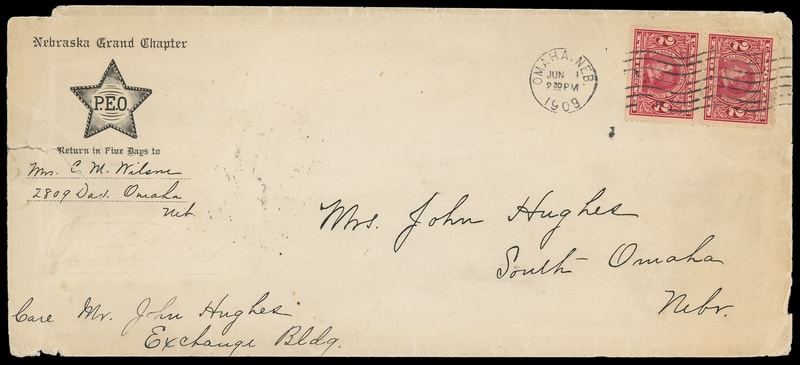 Nebraska Grand Chapter
P.E.O.
Return in Five Days to
Mrs. C. M. Wilson
2809 Dav. Omaha
Neb.
OMAHA, NEB.
JUN 1
2 30 PM
1909
2 2
2 2
Mrs. John Hughes
South Omaha
Nebr.
Care Mr. John Hughes
Exchange Bldg.